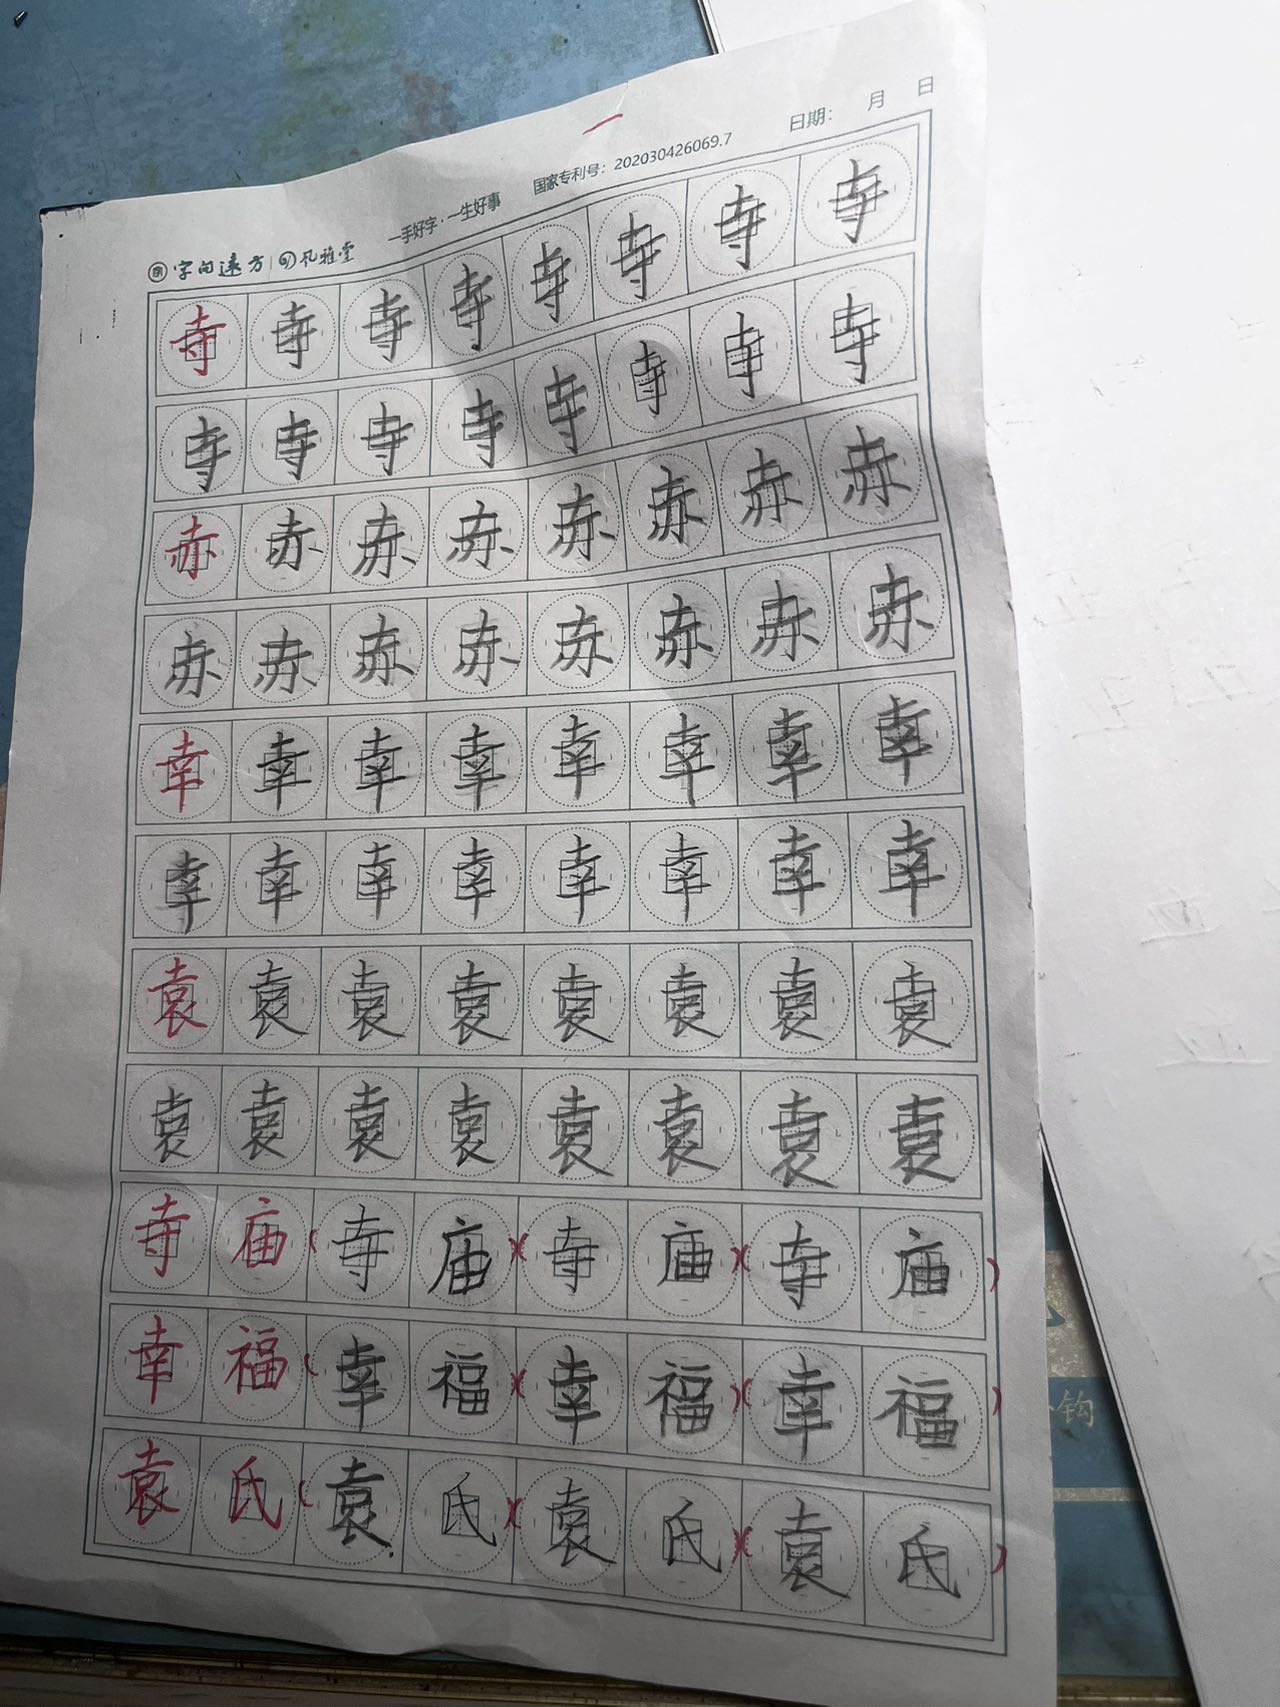 日期： 月 日
国家专利号：202030426069.7
一手好字·一生好事
字向远方 风雅堂
寺 寺 寺 寺 寺 寺 寺 寺
寺 寺 寺 寺 寺 寺 寺 寺
赤 赤 赤 赤 赤 赤 赤 赤
赤 赤 赤 赤 赤 赤 赤 赤
幸 幸 幸 幸 幸 幸 幸 幸
幸 幸 幸 幸 幸 幸 幸 幸
袁 袁 袁 袁 袁 袁 袁 袁
袁 袁 袁 袁 袁 袁 袁 袁
寺 庙 (寺 庙)(寺 庙)(寺 庙)
幸 福 (幸 福)(幸 福)(幸 福)
袁 氏 (袁 氏)(袁 氏)(袁 氏)
钩